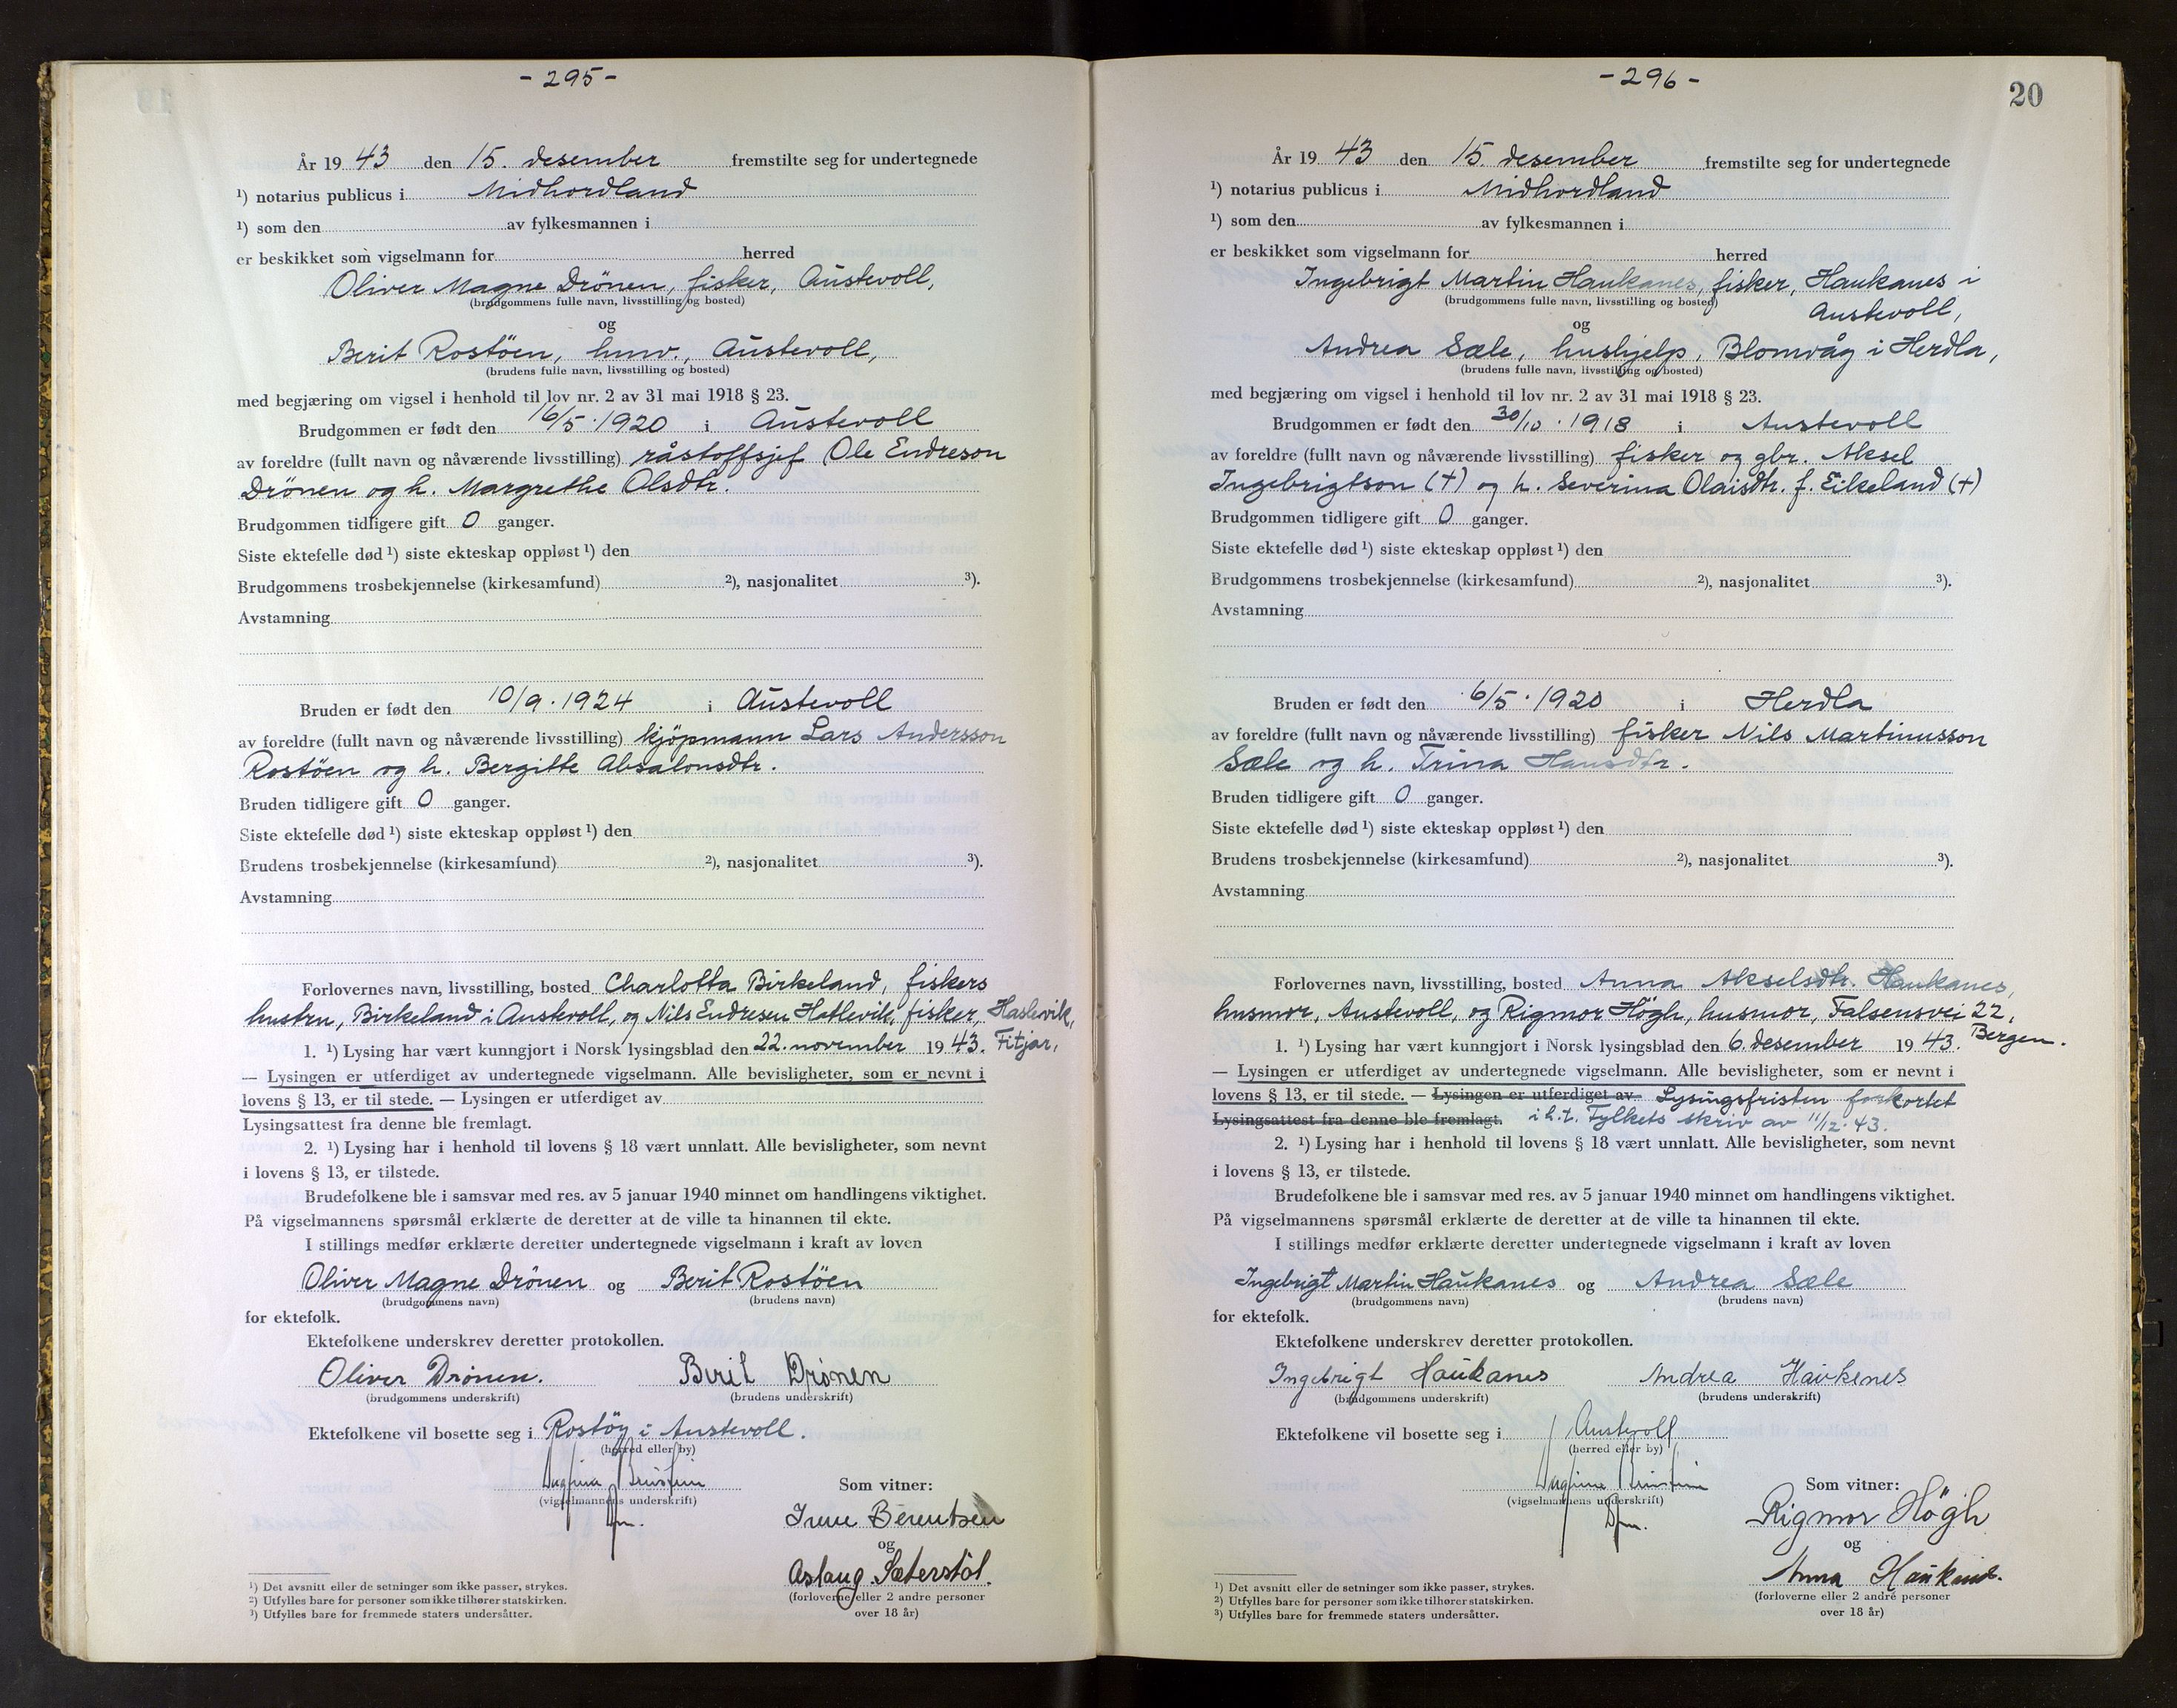 - 295 -
År 19 43 den 15. desember fremstilte seg for undertegnede
¹) notarius publicus i Midhordland
¹) som den av fylkesmannen i
er beskikket som vigselmann for herred
Oliver Magne Drönen, fisker, Austevoll,
(brudgommens fulle navn, livsstilling og bosted)
og
Berit Rostöen, hmv., Austevoll,
(brudens fulle navn, livsstilling og bosted)
med begjæring om vigsel i henhold til lov nr. 2 av 31 mai 1918 § 23.
Brudgommen er født den 16/5. 1920 i Austevoll
av foreldre (fullt navn og nåværende livsstilling) råstoffsjef Ole Endreson
Drönen og h. Margrethe Olsdtr.
Brudgommen tidligere gift 0 ganger.
Siste ektefelle død ¹) siste ekteskap oppløst ¹) den
Brudgommens trosbekjennelse (kirkesamfund) ²), nasjonalitet ³).
Avstamning
Bruden er født den 10/9. 1924 i Austevoll
av foreldre (fullt navn og nåværende livsstilling) kjöpmann Lars Andersson
Rostöen og h. Bergitte Absalonsdtr.
Bruden tidligere gift 0 ganger.
Siste ektefelle død ¹) siste ekteskap oppløst ¹) den
Brudens trosbekjennelse (kirkesamfund) ²), nasjonalitet ³).
Avstamning
Forlovernes navn, livsstilling, bosted Charlotta Birkeland, fiskers
hustru, Birkeland i Austevoll, og Nils Endresen Hatlevik, fisker, Haslevik,
1. ¹) Lysing har vært kunngjort i Norsk lysingsblad den 22. november 19 43. Fitjar,
— Lysingen er utferdiget av undertegnede vigselmann. Alle bevisligheter, som er nevnt i
lovens § 13, er til stede. — Lysingen er utferdiget av
Lysingsattest fra denne ble fremlagt.
2. ¹) Lysing har i henhold til lovens § 18 vært unnlatt. Alle bevisligheter, som nevnt
i lovens § 13, er tilstede.
Brudefolkene ble i samsvar med res. av 5 januar 1940 minnet om handlingens viktighet.
På vigselmannens spørsmål erklærte de deretter at de ville ta hinannen til ekte.
I stillings medfør erklærte deretter undertegnede vigselmann i kraft av loven
Oliver Magne Drönen og Berit Rostöen
(brudgommens navn) (brudens navn)
for ektefolk.
Ektefolkene underskrev deretter protokollen.
Oliver Drönen. Berit Drönen
(brudgommens underskrift) (brudens underskrift)
Ektefolkene vil bosette seg i Rostöy i Austevoll.
(herred eller by)
(vigselmannens underskrift)
Som vitner:
Irene Berentsen
og
Aslaug Sæterstöl.
(forloverne eller 2 andre personer
over 18 år)
¹) Det avsnitt eller de setninger som ikke passer, strykes.
²) Utfylles bare for personer som ikke tilhører statskirken.
³) Utfylles bare for fremmede staters undersåtter.
- 296 -
20
År 19 43 den 15. desember fremstilte seg for undertegnede
¹) notarius publicus i Midhordland
¹) som den av fylkesmannen i
er beskikket som vigselmann for herred
Ingebrigt Martin Haukanes, fisker, Haukanes i
(brudgommens fulle navn, livsstilling og bosted)
Austevoll,
og
Andrea Sæle, hushjelp, Blomvåg i Herdla,
(brudens fulle navn, livsstilling og bosted)
med begjæring om vigsel i henhold til lov nr. 2 av 31 mai 1918 § 23.
Brudgommen er født den 30/10. 1918 i Austevoll
av foreldre (fullt navn og nåværende livsstilling) fisker og gbr. Aksel
Ingebrigtson (+) og h. Severina Olaisdtr. f. Eikeland (+)
Brudgommen tidligere gift 0 ganger.
Siste ektefelle død ¹) siste ekteskap oppløst ¹) den
Brudgommens trosbekjennelse (kirkesamfund) ²), nasjonalitet ³).
Avstamning
Bruden er født den 6/5. 1920 i Herdla
av foreldre (fullt navn og nåværende livsstilling) fisker Nils Martinusson
Sæle og h. Trina Hansdtr.
Bruden tidligere gift 0 ganger.
Siste ektefelle død ¹) siste ekteskap oppløst ¹) den
Brudens trosbekjennelse (kirkesamfund) ²), nasjonalitet ³).
Avstamning
Forlovernes navn, livsstilling, bosted Anna Akselsdtr. Haukanes,
husmor, Austevoll, og Rigmor Högh, husmor, Falsensvei 22,
1. ¹) Lysing har vært kunngjort i Norsk lysingsblad den 6. desember 19 43. Bergen.
— Lysingen er utferdiget av undertegnede vigselmann. Alle bevisligheter, som er nevnt i
lovens § 13, er til stede. — Lysingen er utferdiget av Lysingsfristen forkortet
Lysingsattest fra denne ble fremlagt. i h.t. Fylkets skriv av 11/12. 43.
2. ¹) Lysing har i henhold til lovens § 18 vært unnlatt. Alle bevisligheter, som nevnt
i lovens § 13, er tilstede.
Brudefolkene ble i samsvar med res. av 5 januar 1940 minnet om handlingens viktighet.
På vigselmannens spørsmål erklærte de deretter at de ville ta hinannen til ekte.
I stillings medfør erklærte deretter undertegnede vigselmann i kraft av loven
Ingebrigt Martin Haukanes og Andrea Sæle
(brudgommens navn) (brudens navn)
for ektefolk.
Ektefolkene underskrev deretter protokollen.
Ingebrigt Haukanes Andrea Haukenes
(brudgommens underskrift) (brudens underskrift)
Ektefolkene vil bosette seg i Austevoll
(herred eller by)
(vigselmannens underskrift)
Som vitner:
Rigmor Högh
og
Anna
(forloverne eller 2 andre personer
over 18 år)
¹) Det avsnitt eller de setninger som ikke passer, strykes.
²) Utfylles bare for personer som ikke tilhører statskirken.
³) Utfylles bare for fremmede staters undersåtter.